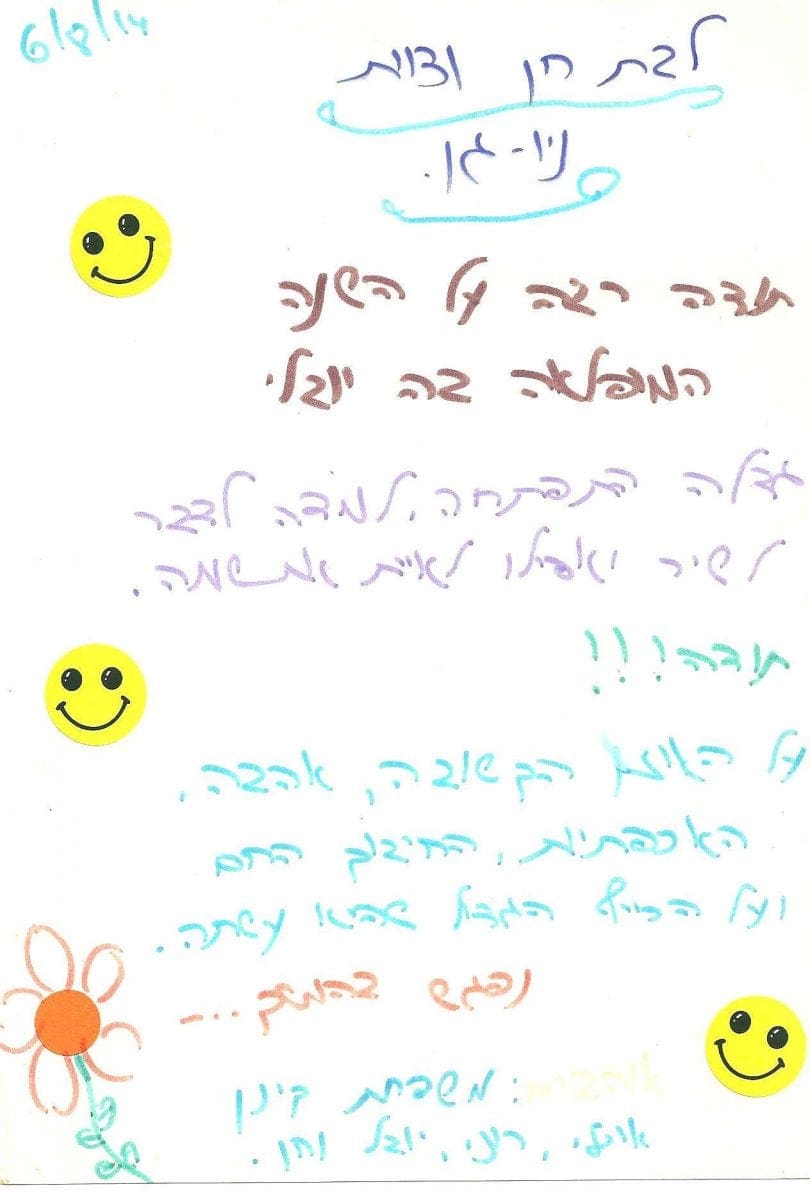 6/8/14
לבת חן וצוות
ניו-גן.
תודה רבה על השנה
המופלאה בה יובלי
גדלה התפתחה, למדה לדבר
לשיר ואפילו לאיית את שמה.
תודה!!!
על האוזן הקשובה, אהבה,
האכפתיות, החיבוק החם
ועל הכייף הגדול שהיא עשתה.
נפגש בהמשך...
אוהבים: משפחת
רוני, יובל וחן.